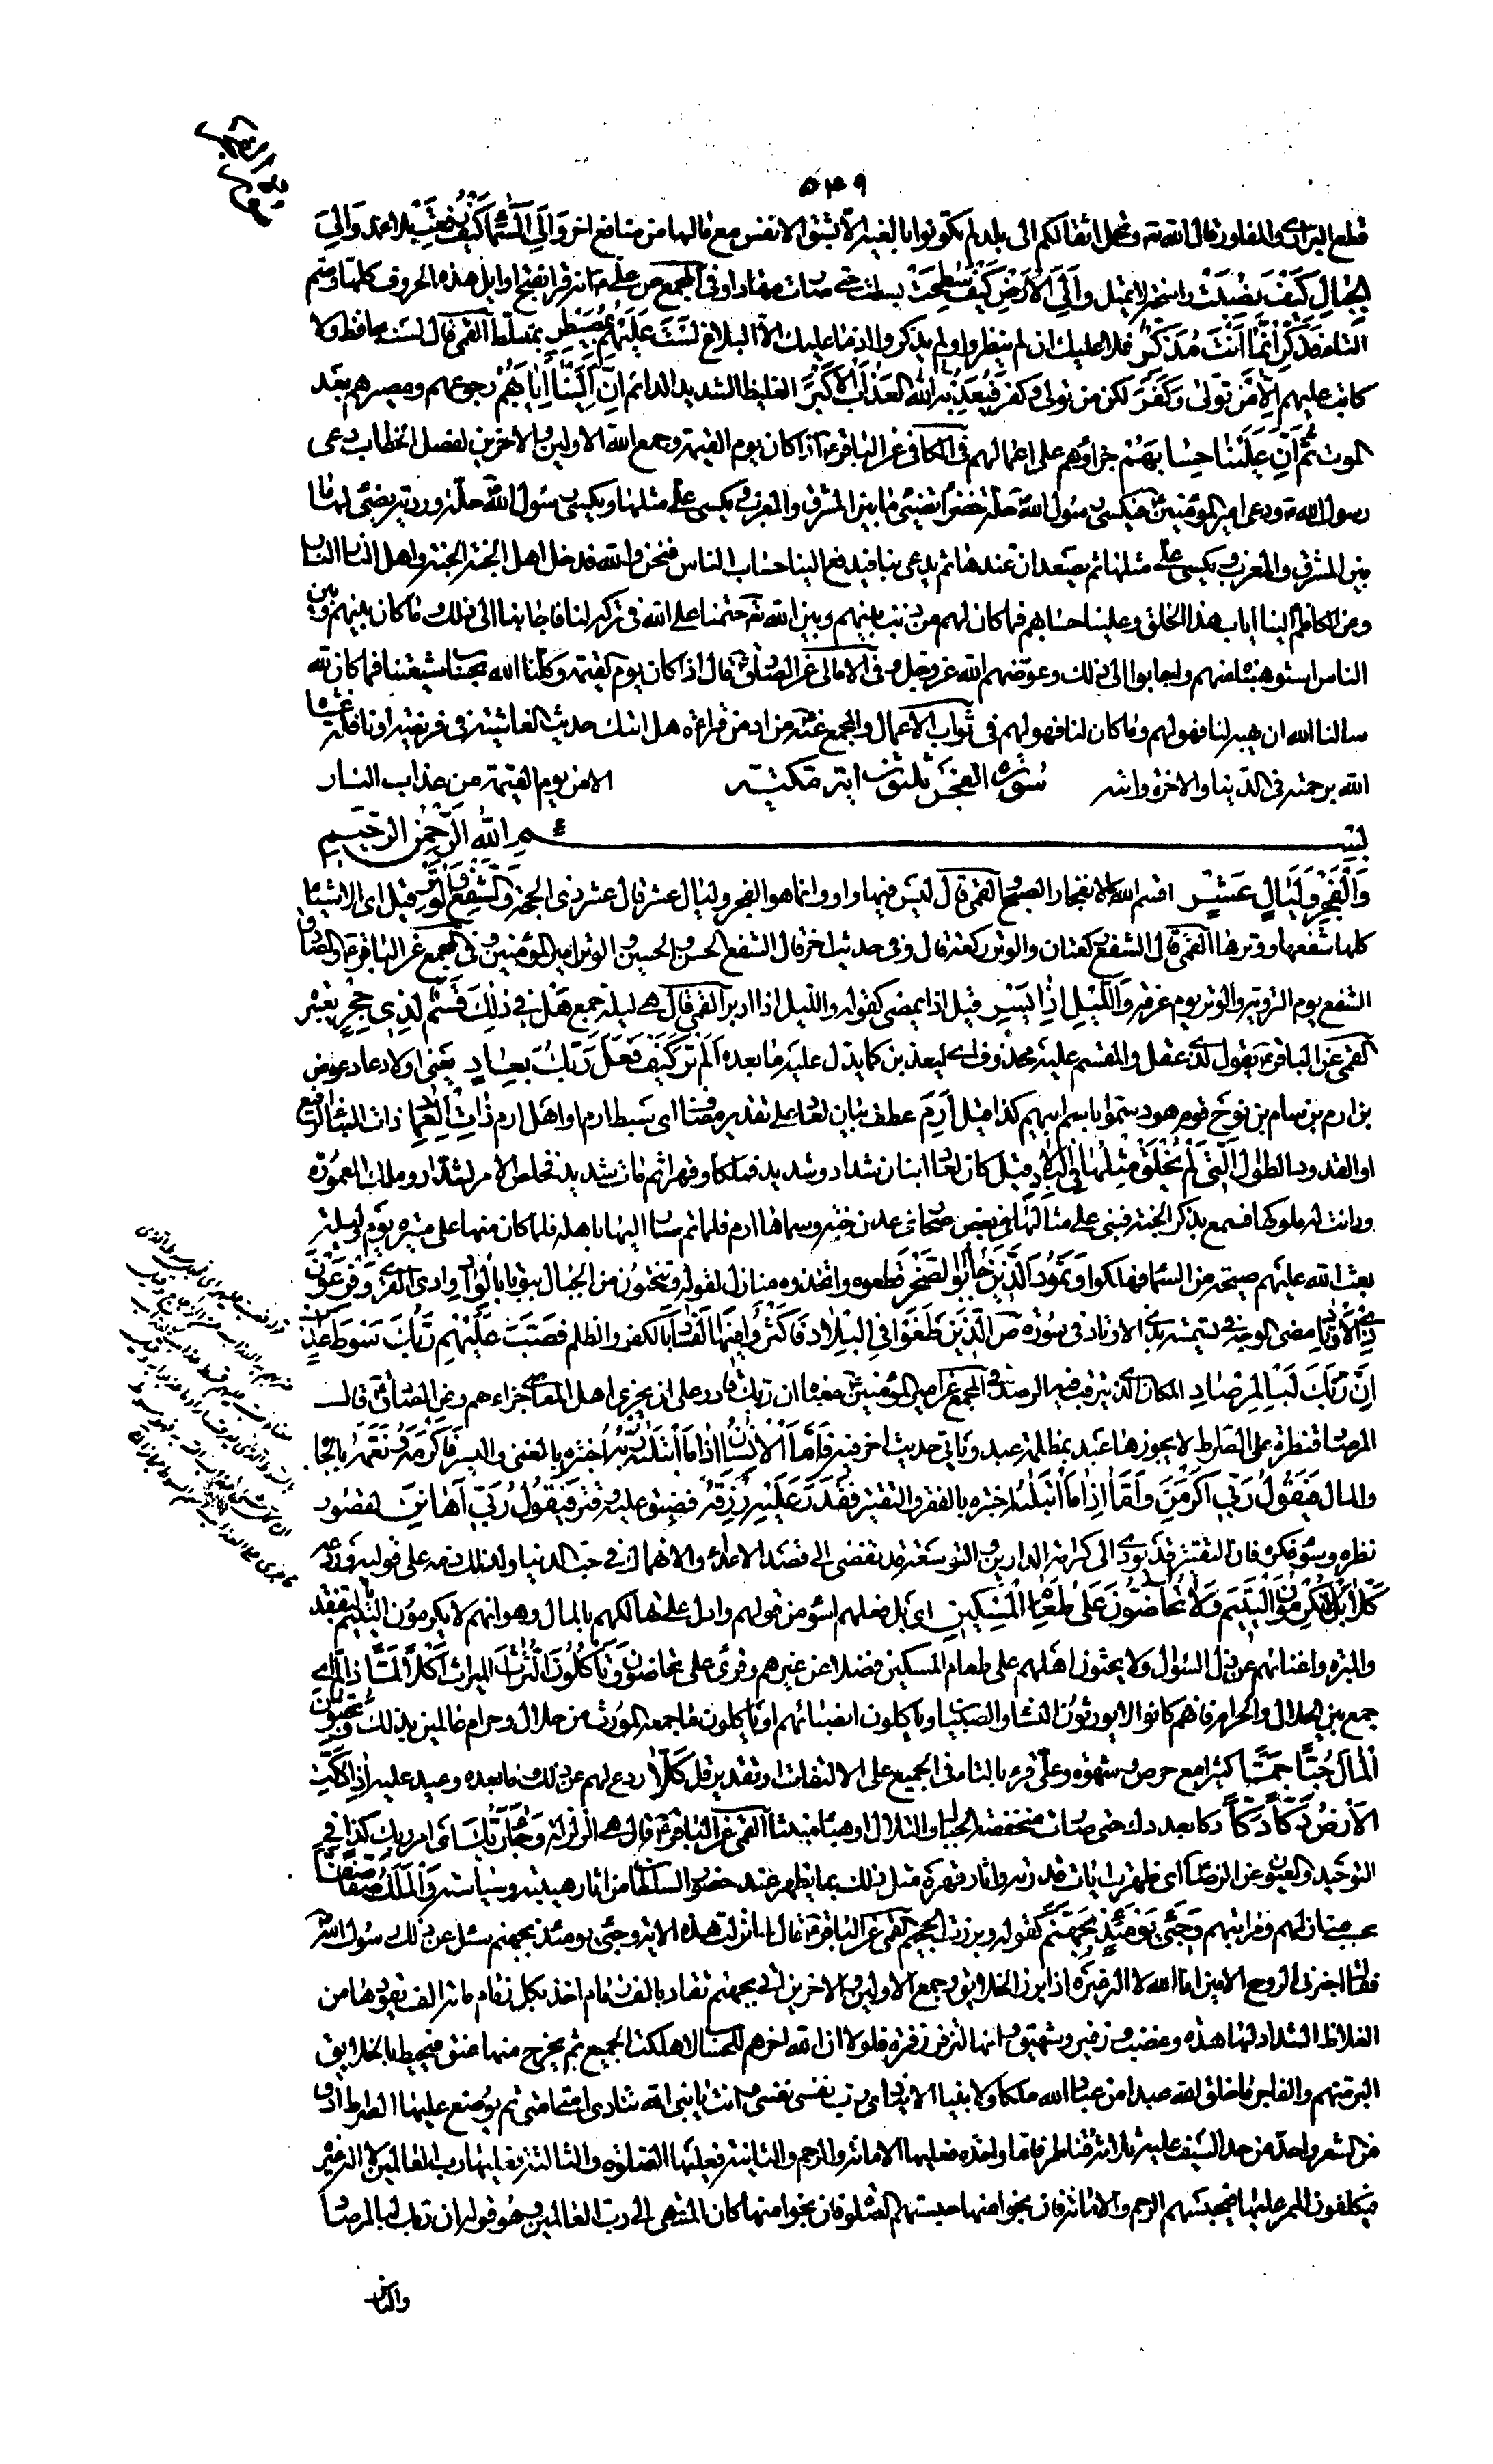 ٥٣٩
قطع البراري والمفاوز قال الله تعالى وتحمل اثقالكم الى بلد لم تكونوا بالغيه الا بشق الانفس مع مالها من منافع اخر وَاِلَى السَّمَاءِ كَيْفَ رُفِعَتْ بلا عمد وَاِلَى
الْجِبَالِ كَيْفَ نُصِبَتْ راسخة لا تميل وَاِلَى الْاَرْضِ كَيْفَ سُطِحَتْ بسطت حتى صارت مهادا وفي المجمع عن علي انه قرا بفتح اوايل هذه الحروف كلها وضم
التاء فَذَكِّرْ اِنَّمَا اَنْتَ مُذَكِّرٌ فلا عليك ان لم ينظروا ولم يذكروا اذ ما عليك الا البلاغ لَسْتَ عَلَيْهِمْ بِمُصَيْطِرٍ بمتسلط القمي قال لست بحافظ ولا
كاتب عليهم اِلَّا مَنْ تَوَلّٰى وَكَفَرَ لكن من تولى وكفر فَيُعَذِّبُهُ اللهُ الْعَذَابَ الْاَكْبَرَ الغليظ الشديد الدائم اِنَّ اِلَيْنَا اِيَابَهُمْ رجوعهم ومصيرهم بعد
الموت ثُمَّ اِنَّ عَلَيْنَا حِسَابَهُمْ جزاؤهم على اعمالهم في الكافي عن الباقر اذا كان يوم القيمة وجمع الله الاولين والاخرين لفصل الخطاب دعي
رسول الله ودعي امير المؤمنين فيكسى رسول الله حلة خضراء تضيء ما بين المشرق والمغرب ويكسى علي مثلها ويكسى رسول الله حلة وردية يضيء لها ما
بين المشرق والمغرب ويكسى علي مثلها ثم يصعدان عندها ثم يدعى بنا فيدفع الينا حساب الناس فنحن والله ندخل اهل الجنة الجنة واهل النار النار
وعن الكاظم الينا اياب هذا الخلق وعلينا حسابهم فما كان لهم من ذنب بينهم وبين الله تعالى حتمنا على الله في تركه لنا فاجابنا الى ذلك وما كان بينهم وبين
الناس استوهبناه منهم واجابوا الى ذلك وعوضهم الله عز وجل وفي الامالي عن الصادق قال اذا كان يوم القيمة وكلنا الله بحساب شيعتنا فما كان لله
سالنا الله ان يهبه لنا فهو لهم وما كان لنا فهو لهم في ثواب الاعمال والمجمع عنه من ادمن قراءة هل اتيك حديث الغاشية في فريضة او نافلة غشاه
الله برحمته في الدنيا والاخرة واتاه الامن يوم القيمة من عذاب النار
سُورَةُ الْفَجْرِ ثلثون اية مكية
بِسْمِ اللهِ الرَّحْمٰنِ الرَّحِيمِ
وَالْفَجْرِ وَلَيَالٍ عَشْرٍ اقسم الله بانفجار الصبح القمي قال ليس فيها واو وانما هو الفجر وليال عشر قال عشر ذي الحجة وَالشَّفْعِ وَالْوَتْرِ قيل اي الاشياء
كلها شفعها ووترها القمي قال الشفع ركعتان والوتر ركعة قال وفي حديث اخر قال الشفع الحسن والحسين والوتر امير المؤمنين وفي المجمع عن الباقر والصادق
الشفع يوم التروية والوتر يوم عرفة وَاللَّيْلِ اِذَا يَسْرِ قيل اذا يمضي كقوله والليل اذا ادبر القمي قال هي ليلة جمع هَلْ فِي ذٰلِكَ قَسَمٌ لِذِي حِجْرٍ يعتبر
القمي عن الباقر يقول لذي عقل والمقسم عليه محذوف اي ليعذبن كما يدل عليه ما بعده اَلَمْ تَرَ كَيْفَ فَعَلَ رَبُّكَ بِعَادٍ يعني اولاد عاد بن عوص
بن ارم بن سام بن نوح قوم هود سموا باسم ابيهم كذا قيل اِرَمَ عطف بيان لعاد على تقدير مضاف اي سبط ارم او اهل ارم ذَاتِ الْعِمَادِ ذات البناء الرفيع
او القدود الطوال الَّتِي لَمْ يُخْلَقْ مِثْلُهَا فِي الْبِلَادِ قيل كان لعاد ابنان شداد وشديد فملكا وقهرا ثم مات شديد فخلص الامر لشداد وملك المعمورة
ودانت له ملوكها فسمع بذكر الجنة فبنى على مثالها في بعض صحاري عدن جنة وسماها ارم فلما تم سار اليها باهله فلما كان منها على مسيرة يوم وليلة
بعث الله عليهم صيحة من السماء فهلكوا وَثَمُودَ الَّذِينَ جَابُوا الصَّخْرَ قطعوه واتخذوه منازل لقوله وتنحتون من الجبال بيوتا بِالْوَادِ وادي القرى وَفِرْعَوْنَ
ذِي الْاَوْتَادِ مضى الوجه في تسميته بذي الاوتاد في سورة ص الَّذِينَ طَغَوْا فِي الْبِلَادِ فَاَكْثَرُوا فِيهَا الْفَسَادَ بالكفر والظلم فَصَبَّ عَلَيْهِمْ رَبُّكَ سَوْطَ عَذَابٍ
اِنَّ رَبَّكَ لَبِالْمِرْصَادِ المكان الذي يترقب فيه الرصد في المجمع عن امير المؤمنين معناه ان ربك قادر على ان يجزي اهل المعاصي جزاءهم وعن الصادق قال
المرصاد قنطرة على الصراط لا يجوزها عبد بمظلمة عبد وياتي حديث اخر فيه فَاَمَّا الْاِنْسَانُ اِذَا مَا ابْتَلٰيهُ رَبُّهُ اختبره بالغنى واليسر فَاَكْرَمَهُ وَنَعَّمَهُ بالجاه
والمال فَيَقُولُ رَبِّي اَكْرَمَنِ وَاَمَّا اِذَا مَا ابْتَلٰيهُ اختبره بالفقر والتقتير فَقَدَرَ عَلَيْهِ رِزْقَهُ فضيق عليه وقتر فَيَقُولُ رَبِّي اَهَانَنِ لقصور
نظره وسوء فكره فان التقتير قد يؤدي الى كرامة الدارين والتوسعة قد تفضي الى قصد الاعداء والانهماك في حب الدنيا ولذلك ذمه على قوليه وردعه
كَلَّا بَلْ لَا تُكْرِمُونَ الْيَتِيمَ وَلَا تَحَاضُّونَ عَلٰى طَعَامِ الْمِسْكِينِ اي بل فعلهم اسوء من قولهم وادل على تهالكهم بالمال وهو انهم لا يكرمون اليتيم بالتفقد
والمبرة واغنائهم عن ذل السؤال ولا يحثون اهلهم على طعام المسكين فضلا عن غيرهم وقرئ على تحاضون وَتَاْكُلُونَ التُّرَاثَ الميراث اَكْلًا لَمًّا ذا لم اي
جمع بين الحلال والحرام فانهم كانوا لا يورثون النساء والصبيان وياكلون انصباءهم او ياكلون ما جمعه المورث من حلال وحرام عالمين بذلك وَتُحِبُّونَ
الْمَالَ حُبًّا جَمًّا كثيرا مع حرص وشهوة وعلى قرء بالتاء في الجميع على الالتفات او تقدير قل كَلَّا ردع لهم عن ذلك وما بعده وعيد عليه اِذَا دُكَّتِ
الْاَرْضُ دَكًّا دَكًّا دكا بعد دك حتى صارت منخفضة الجبال والتلال او هباء منبثا القمي عن الباقر قال هي الزلزلة وَجَاءَ رَبُّكَ اي امر ربك كذا في
التوحيد والعيون عن الرضا اي ظهرت ايات قدرته واثار قهره مثل ذلك بما يظهر عند حضور السلطان من اثار هيبته وسياسته وَالْمَلَكُ صَفًّا صَفًّا
بحسب منازلهم ومراتبهم وَجِيءَ يَوْمَئِذٍ بِجَهَنَّمَ كقوله وبرزت الجحيم القمي عن الباقر قال لما نزلت هذه الاية وجيء يومئذ بجهنم سئل عن ذلك رسول الله
فقال اخبرني الروح الامين ان الله لا اله غيره اذا ابرز الخلايق وجمع الاولين والاخرين اتى بجهنم تقاد بالف زمام اخذ بكل زمام مائة الف يقودها من
الغلاظ الشداد لها هدة وغضب وزفير وشهيق وانها لتزفر زفرة فلولا ان الله اخرهم للحساب لاهلكت الجميع ثم يخرج منها عنق فيحيط بالخلايق
البر منهم والفاجر ما خلق الله عبدا من عباد الله ملكا ولا نبيا الا ينادي رب نفسي نفسي وانت يا نبي الله تنادي امتي امتي ثم يوضع عليها الصراط ادق
من الشعر واحد من حد السيف عليه ثلاث قناطر فاما واحدة فعليها الامانة والرحم والثانية فعليها الصلوة والثالثة فعليها رب العالمين لا اله غيره
فيكلفون الممر عليها فيحبسهم الرحم والامانة فان نجوا منها حبستهم الصلوة فان نجوا منها كان المنتهى الى رب العالمين وهو قوله ان ربك لبالمرصاد
والناس